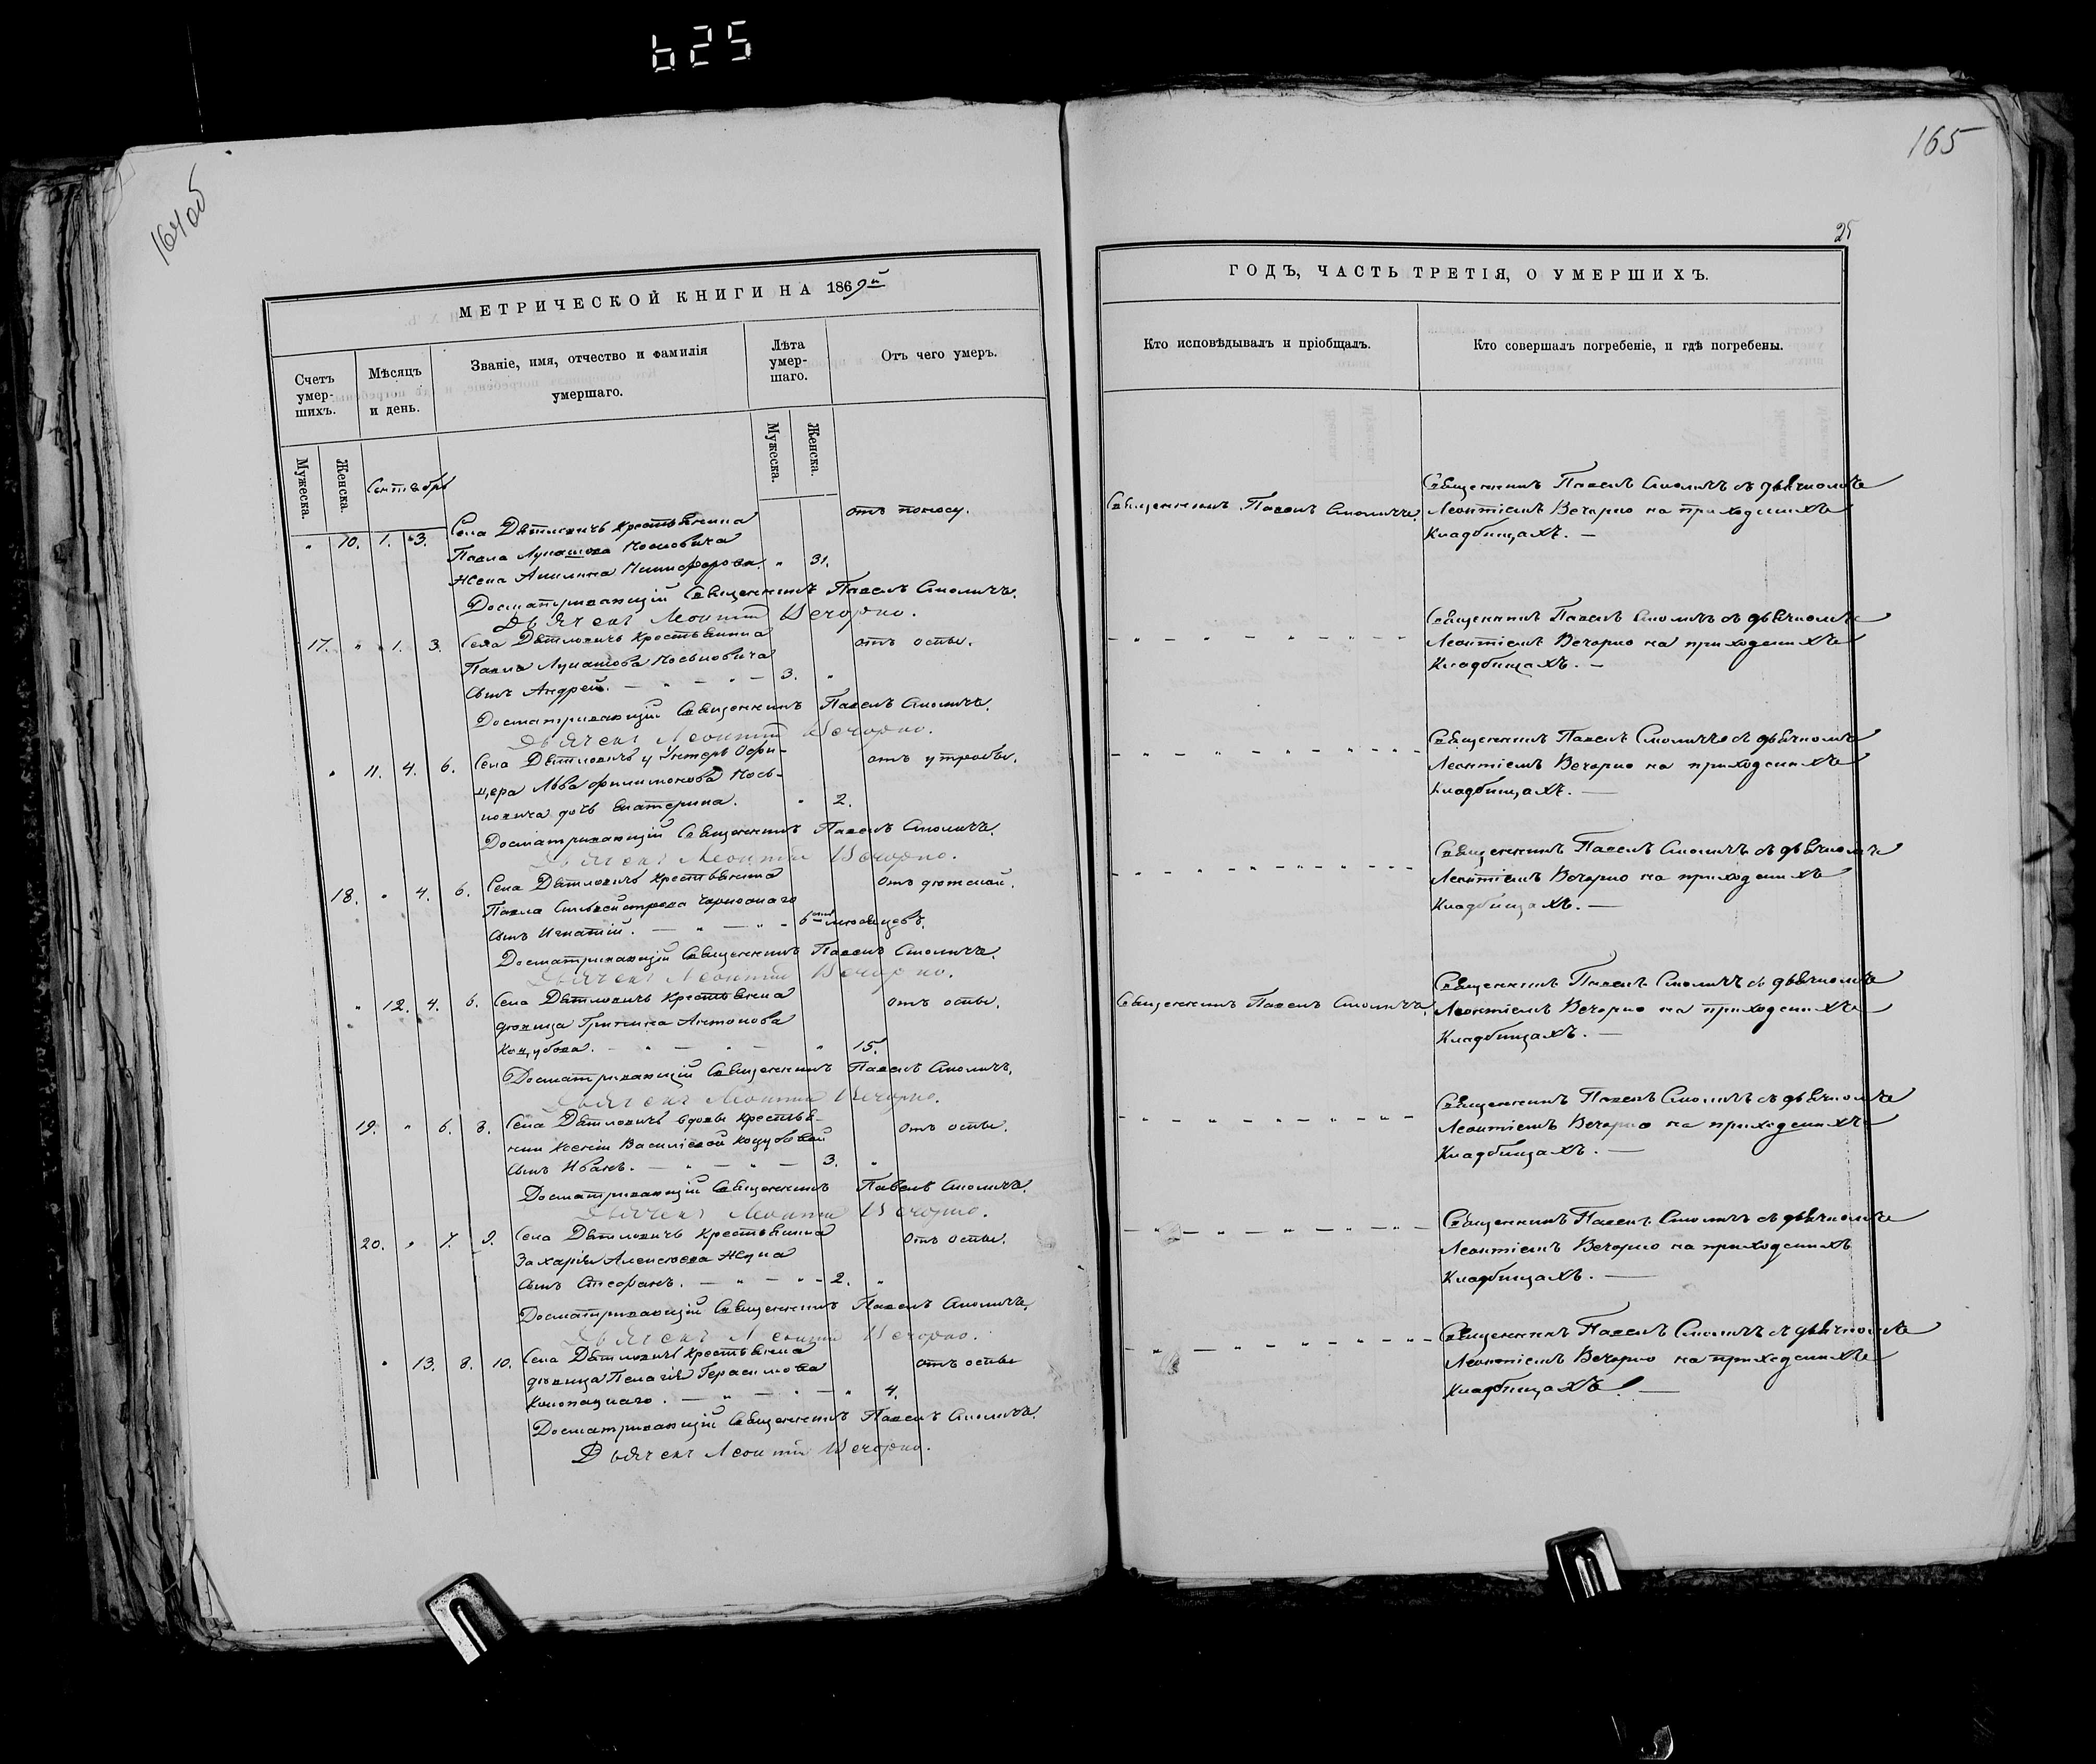 625
164об
165
25
МЕТРИЧЕСКОЙ КНИГИ НА 1869й
Счетъ умер-шихъ.
Мѣсяцъ и день.
Званіе, имя, отчество и фамилія умершаго.
Лѣта умер-шаго.
Отъ чего умеръ.
Мужеска.
Женска.
Мужеска.
Женска.
Сентябрь
" 10. 1. 3. Села Дѣтловичъ крестьянина отъ поносу.
Павла Лукашова
жена Акилина Никифорова. " 31.
Досматривающій Священникъ Павелъ Смоличъ.
Дьячекъ Леонтій Вечорко.
17. " 1. 3. Села Дѣтловичъ крестьянина отъ оспы.
Павла Лукашова
сынъ Андрей. 3. "
Досматривающій Священникъ Павелъ Смоличъ.
Дьячекъ Леонтій Вечорко.
" 11. 4. 6. Села Дѣтловичъ у Унтеръ Офи-
цера Льва Филимонова
дочь Екатерина. " 2.
Досматривающій Священникъ Павелъ Смоличъ.
Дьячекъ Леонтій Вечорко.
18. " 4. 6. Села Дѣтловичъ крестьянина
Павла
сынъ Игнатій. 6
Досматривающій Священникъ Павелъ Смоличъ.
Дьячекъ Леонтій Вечорко.
" 12. 4. 6. Села Дѣтловичъ крестьянина отъ оспы.
дѣвица Антонова
" 15.
Досматривающій Священникъ Павелъ Смоличъ.
Дьячекъ Леонтій Вечорко.
19. " 6. 8. Села Дѣтловичъ вдовы крестья- отъ оспы.
нки Ксеніи Василіевой
сынъ Иванъ. 3. "
Досматривающій Священникъ Павелъ Смоличъ.
Дьячекъ Леонтій Вечорко.
20. " 7. 9. Села Дѣтловичъ крестьянина отъ оспы.
Захарія Алексѣева
сынъ Стефанъ. 2. "
Досматривающій Священникъ Павелъ Смоличъ.
Дьячекъ Леонтій Вечорко.
" 13. 8. 10. Села Дѣтловичъ крестьянина отъ оспы
дѣвица Пелагія Герасимова
" 4.
Досматривающій Священникъ Павелъ Смоличъ.
Дьячекъ Леонтій Вечорко.
ГОДЪ, ЧАСТЬ ТРЕТІЯ, О УМЕРШИХЪ.
Кто исповѣдывалъ и пріобщалъ.
Кто совершалъ погребеніе, и гдѣ погребены.
Священникъ Павелъ Смоличъ. Священникъ Павелъ Смоличъ съ дьячкомъ
Леонтіемъ Вечорко на приходскихъ
кладбищахъ. —
Священникъ Павелъ Смоличъ съ дьячкомъ
Леонтіемъ Вечорко на приходскихъ
кладбищахъ. —
Священникъ Павелъ Смоличъ съ дьячкомъ
Леонтіемъ Вечорко на приходскихъ
кладбищахъ. —
Священникъ Павелъ Смоличъ съ дьячкомъ
Леонтіемъ Вечорко на приходскихъ
кладбищахъ. —
Священникъ Павелъ Смоличъ. Священникъ Павелъ Смоличъ съ дьячкомъ
Леонтіемъ Вечорко на приходскихъ
кладбищахъ. —
Священникъ Павелъ Смоличъ съ дьячкомъ
Леонтіемъ Вечорко на приходскихъ
кладбищахъ. —
Священникъ Павелъ Смоличъ съ дьячкомъ
Леонтіемъ Вечорко на приходскихъ
кладбищахъ. —
Священникъ Павелъ Смоличъ съ дьячкомъ
Леонтіемъ Вечорко на приходскихъ
кладбищахъ. —